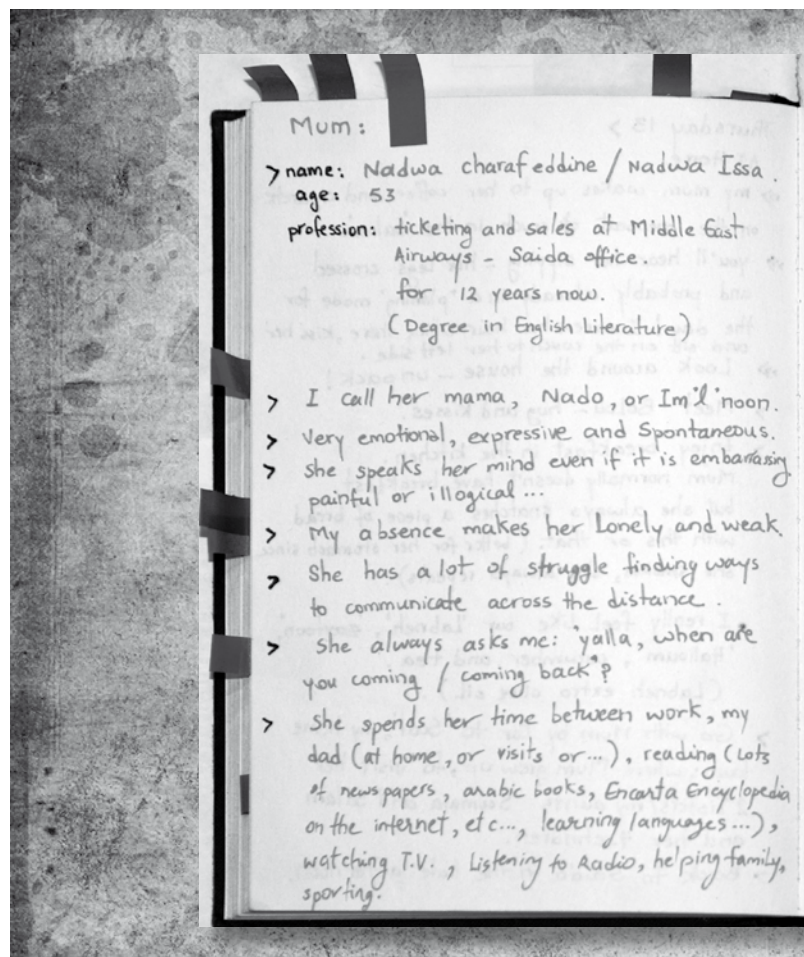 Mum:
> name: Nadwa charafeddine / Nadwa Issa.
age: 53
profession: ticketing and sales at Middle East
Airways - Saida office.
for 12 years now.
(Degree in English Literature)
> I call her mama, Nado, or Im'l'noon.
> Very emotional, expressive and Spontaneous.
> She speaks her mind even if it is embarrasing
painful or illogical...
> My absence makes her Lonely and weak.
> She has a lot of struggle finding ways
to communicate across the distance.
> She always asks me: yalla, when are
you coming / coming back"?
> She spends her time between work, my
dad (at home, or visits or...), reading (Lots
of newspapers, arabic books, Encarta Encyclopedia
on the internet, etc..., learning languages...),
watching T.V., Listening to Radio, helping family,
sporting.